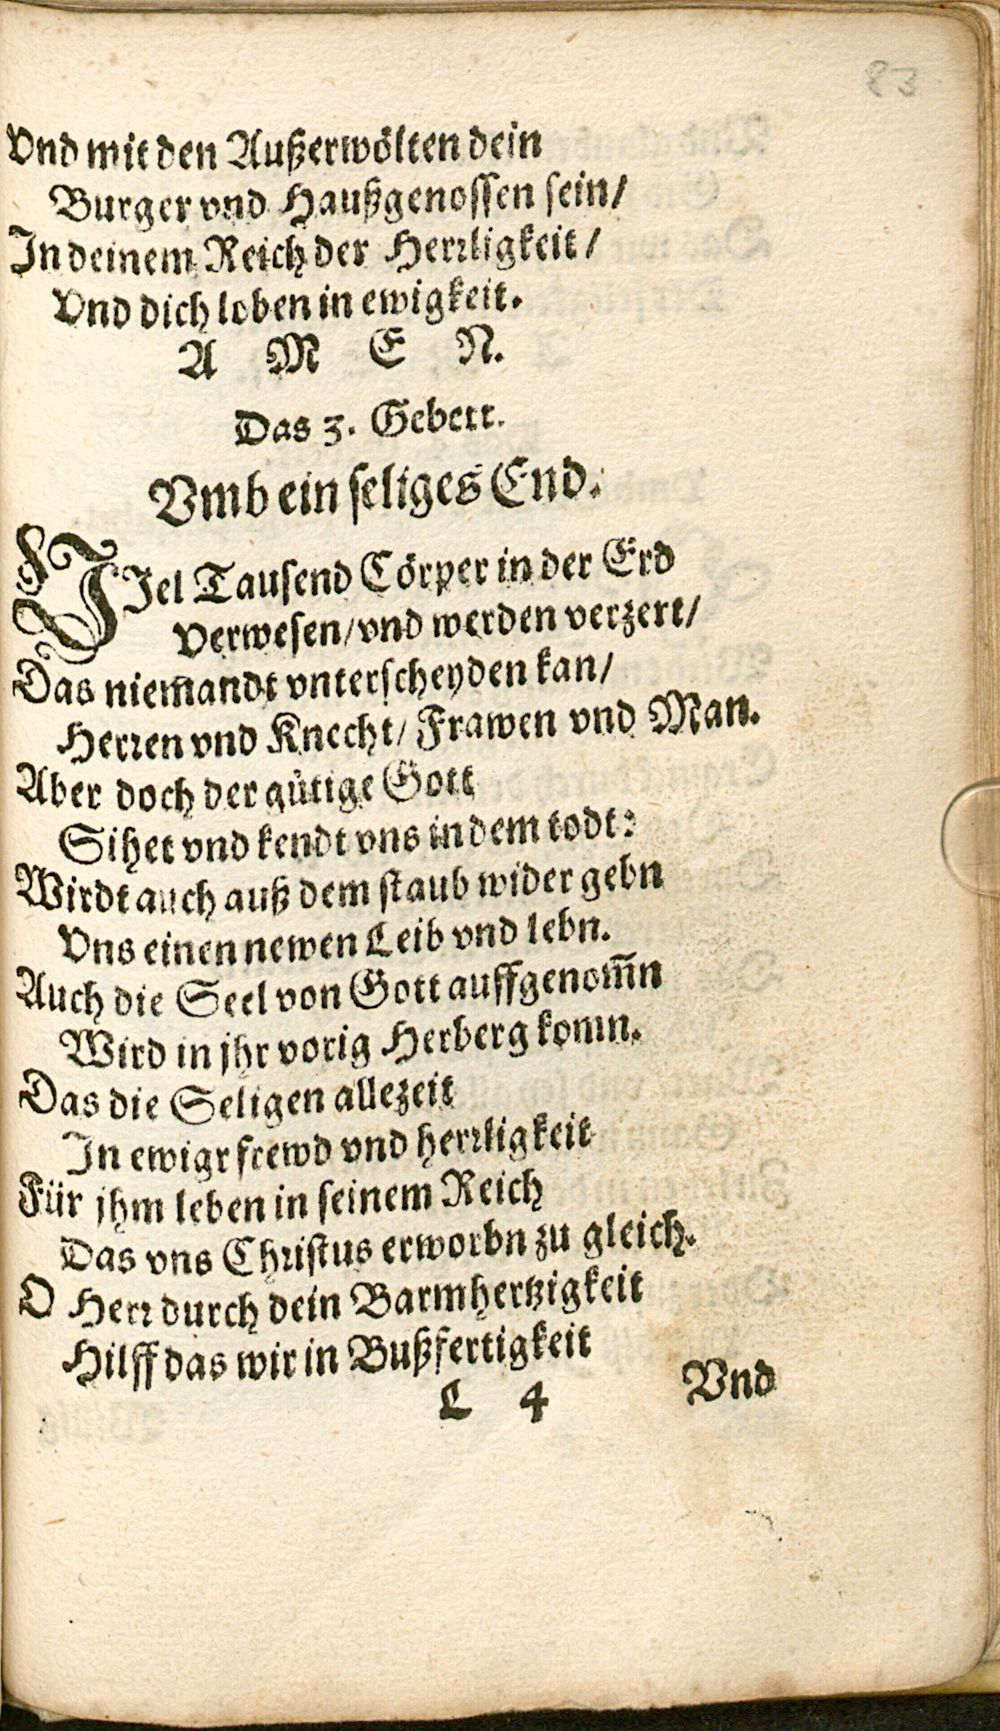 83
Vnd mit den Außerwölten dein
Burger vnd Haußgenossen sein/
In deinem Reich der Herrligkeit/
Vnd dich loben in ewigkeit.
A M E N.
Das 3. Gebett.
Vmb ein seliges End.
VIel Tausend Cörper in der Erd
Verwesen/vnd werden verzert/
Das niem̄andt vnterscheyden kan/
Herren vnd Knecht/ Frawen vnd Man.
Aber doch der gütige Gott
Sihet vnd kendt vns in dem todt:
Wirdt auch auß dem staub wider gebn
Vns einen newen Leib vnd lebn.
Auch die Seel von Gott auffgenom̄n
Wird in jhr vorig Herberg komn.
Das die Seligen allezeit
In ewigr frewd vnd herrligkeit
Für jhm leben in seinem Reich
Das vns Christus erworbn zu gleich.
O Herr durch dein Barmhertzigkeit
Hilff das wir in Bußfertigkeit
L 4 Vnd